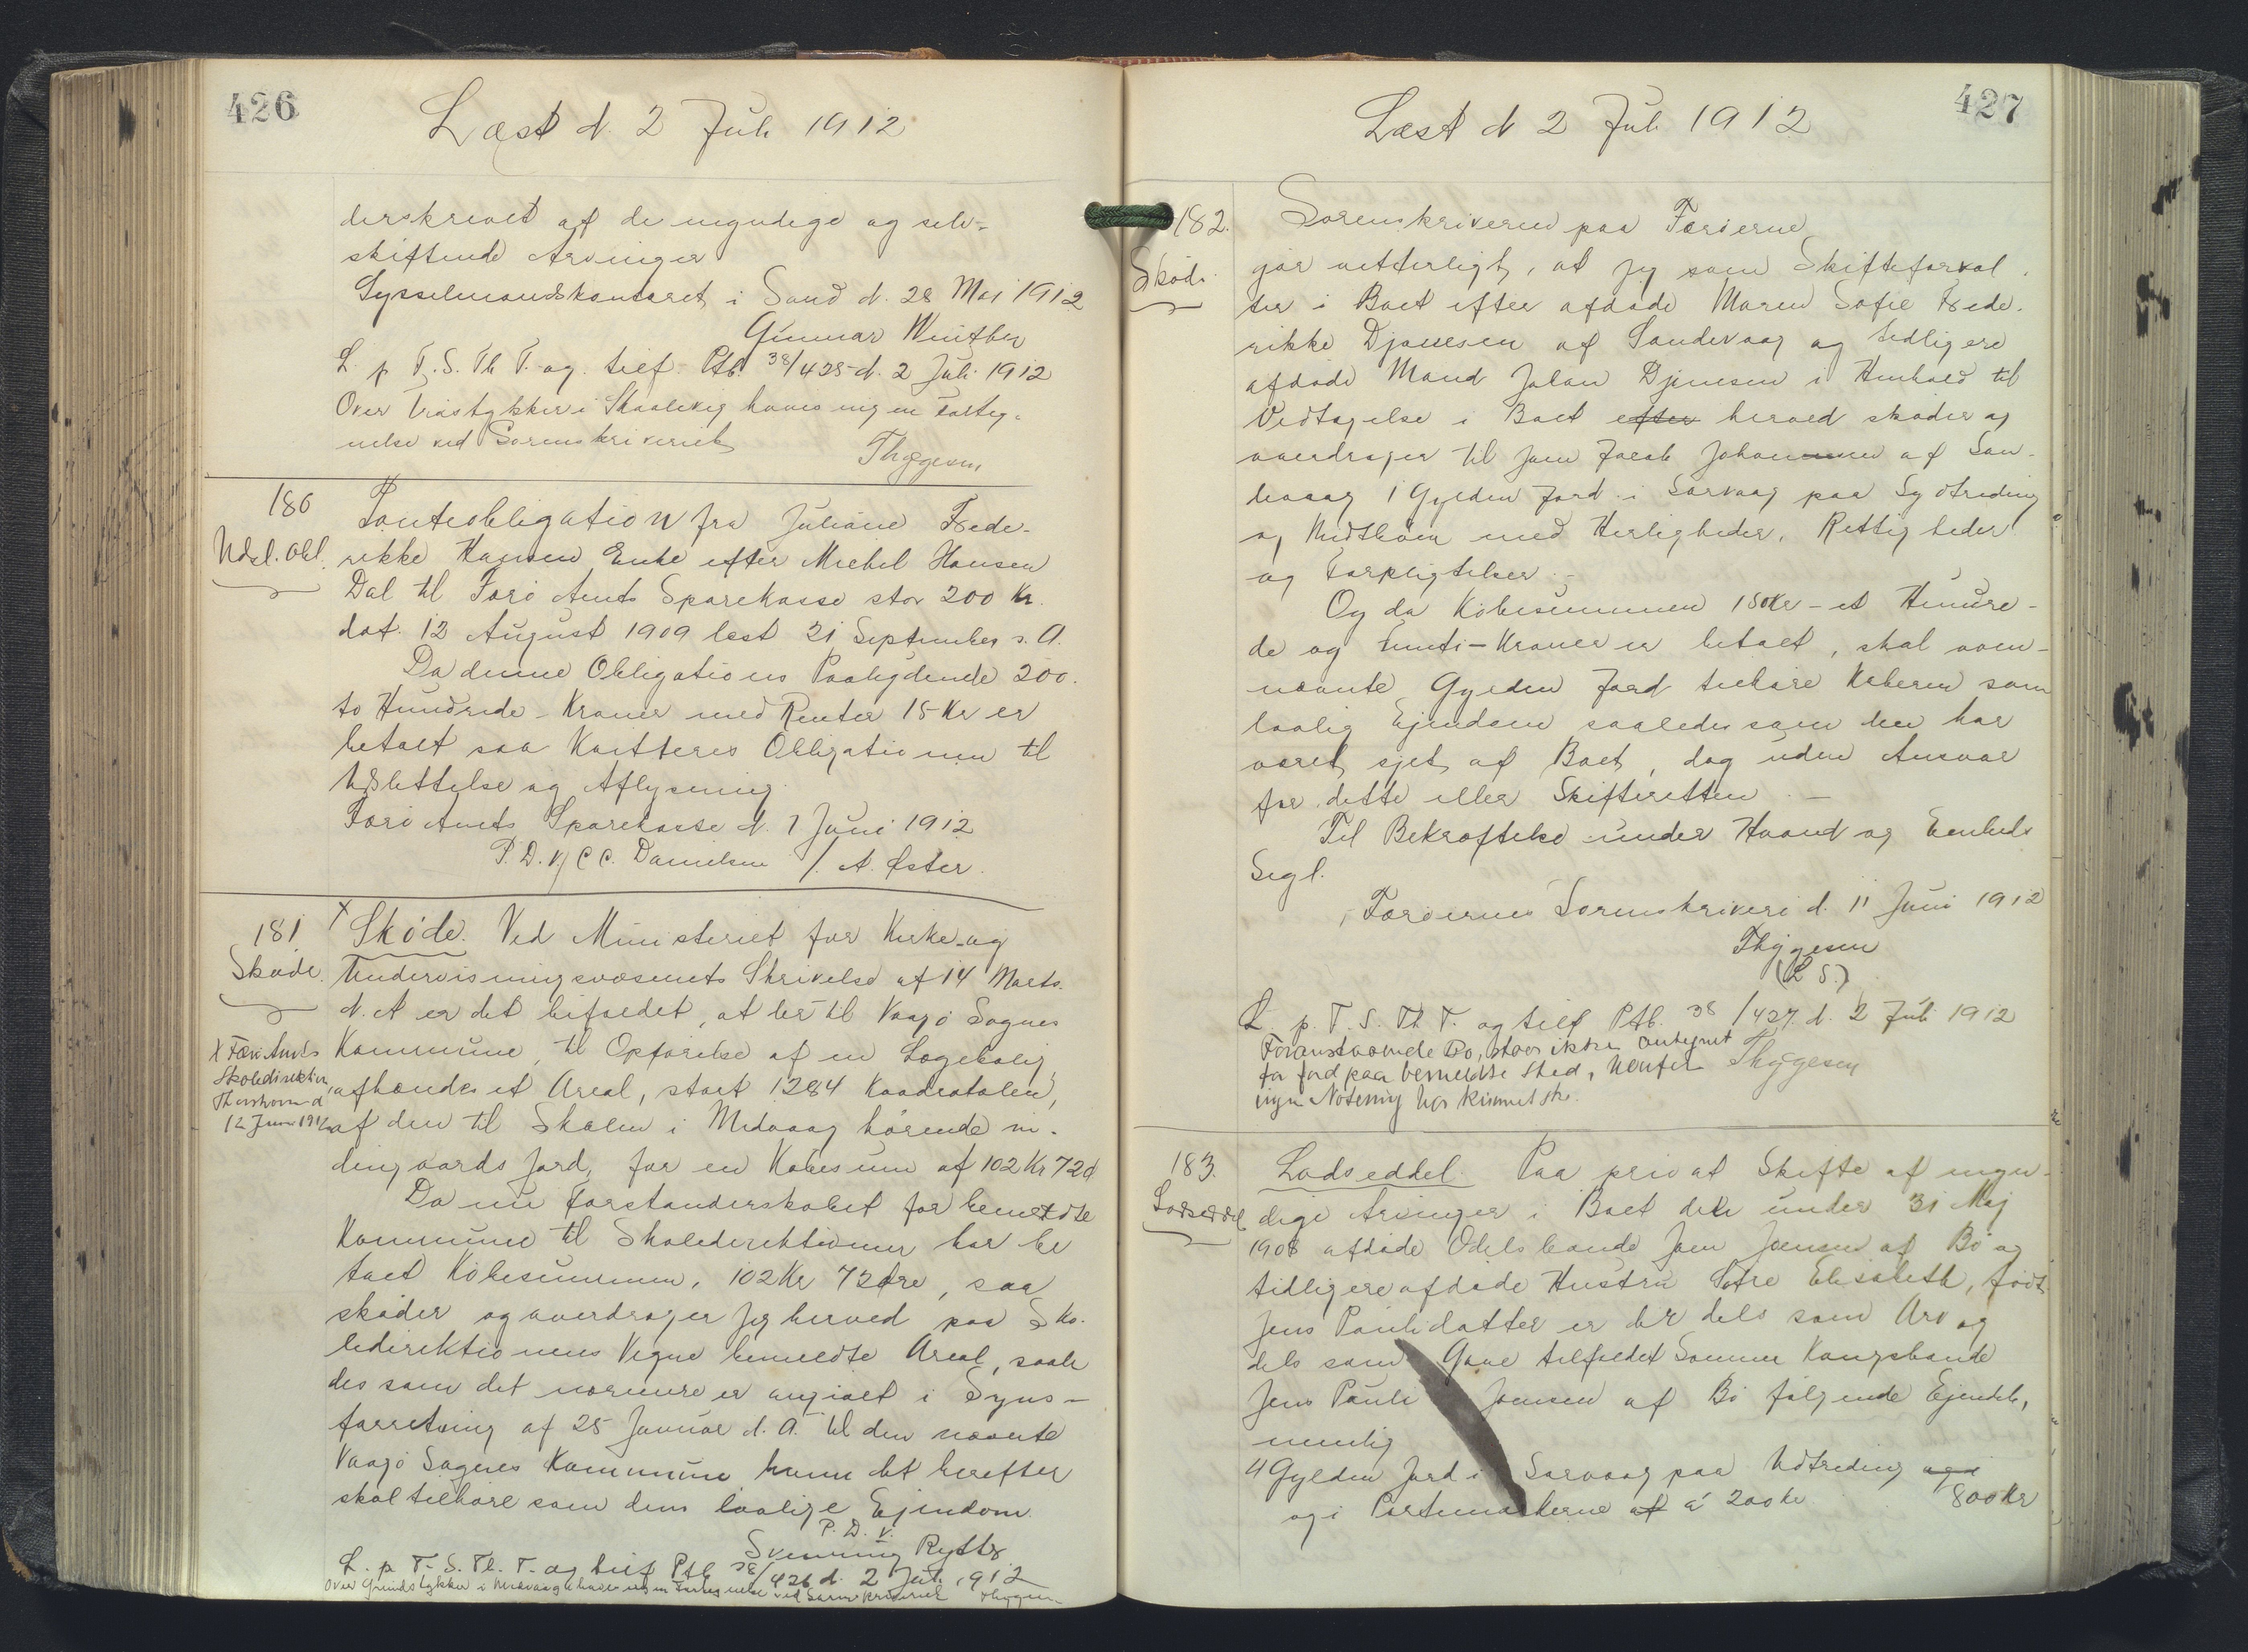 426
Læst d. 2 Juli 1912
derskrevet af de myndige og selv-
skiftende Arvinger
Sysselmandskontoret i Sand d. 28 Maj 1912
Gunnar
L. p. F. S. Th. T. og tilf. Ptb. 38/425 d. 2 Juli 1912
Over Træstykker i Skaalevig haves ingen Forteg-
nelse ved Sorenskriveriet
Thygesen
180
Udsl. Obl.
Panteobligation fra Juliane Frede-
rikke Hansen Enke efter Michel Hansen
Dal til Færø Amts Sparekasse stor 200 Kr.
dat. 12 August 1909 læst 21 September s. A.
Da denne Obligations Paalydende 200.
to Hundrede Kroner med Renter 15 Kr er
betalt saa Kvitteres Obligationen til
Udslettelse og Aflysning
Færø Amts Sparekasse d. 1 Juni 1912
P. D. V. / C C. Danielsen /. A. Øster.
181
Skøde
X Skøde. Ved Ministeriet for Kirke- og
Undervisningsvæsenets Skrivelse af 14 Marts
d. A er det bifaldet, at der til Vaagø Sognes
X Færø Amts
Skoledirektion,
Thorshavn d
12 Juni 1912
Kommune, til Opførelse af en Lægebolig,
afhændes et Areal, stort 1284 Kvadratalen,
af den til Skolen i Midvaag hørende in-
dengaards Jord, for en Købesum af 102 Kr 72 Ø
Da nu Forstanderskabet for bemeldte
Kommune til Skoledirektionen har be
talt Købesummen, 102 Kr 72 Øre, saa
skøder og overdrager jeg herved paa Sko-
ledirektionens Vegne bemeldte Areal, saale
des som det nærmere er angivet i Syns-
forretning af 25 Januar d. A. til den nævnte
Vaagø Sognes Kommune, hvem det herefter
skal tilhøre som dens lovlige Ejendom.
P. D. V.
Svenning Rytter
L. p. F. S. Th. T. og tilf Ptb 38/426 d. 2 Juli 1912
Over Grundstykker i Midvaag haves ingen Fortegnelse ved Sorenskriveriet Thygesen
427
Læst d 2 Juli 1912
182.
Skøde
Sorenskriveren paa Færøerne
gør vitterligt, at jeg som Skifteforval
ter i Boet efter afdøde Maren Sofie Frede-
rikke Djonesen af Sandevaag og tidligere
afdøde Mand Johan Djonesen i Henhold til
Vedtagelse i Boet efter herved skøder og
overdrager til Joen Jacob Johannesen af San-
devaag 1 Gylden Jord i Sørvaag paa Sydtreding
og Midthøen med Herligheder, Rettigheder
og Forpligtelser.-
Og da Købesummen 150 Kr - et Hundre-
de og Femti - Kroner er betalt, skal oven-
nævnte Gylden Jord tilhøre Køberen som
lovlig Ejendom saaledes som den har
været ejet af Boet, dog uden Ansvar
for dette eller Skifteretten.-
Til Bekræftelse under Haand og Embeds
Segl.
Færøernes Sorenskriveri d. 11 Juni 1912
Thygesen
(L S.)
L. p. F. S. Th. T. og tilf Ptb. 38/427. d. 2 Juli 1912
Foranstaaende Bo, staar ikke antegnet
for Jord paa bemeldte Sted,
ingen Notering har kunnet ske.
Thygesen
183.
Lodseddel
Lodseddel. Paa privat Skifte af myn-
dige Arvinger i Boet efter under 31 Maj
1908 afdøde Odelsbonde Joen Joensen af Bø og
tidligere afdøde Hustru Sofie Elisabeth, født
Jens Paulidatter er der dels som Arv og
dels som Gave tilfaldet Sønnen Kongsbonde
Jens Pauli Joensen af Bø følgende Ejendele,
nemlig
4 Gylden Jord i Sørvaag paa Udtreding og i
og i af á 200 Kr
800 Kr